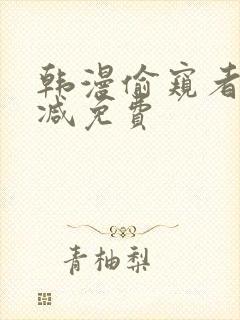 韩漫偷窥者
减免費
青柚梨